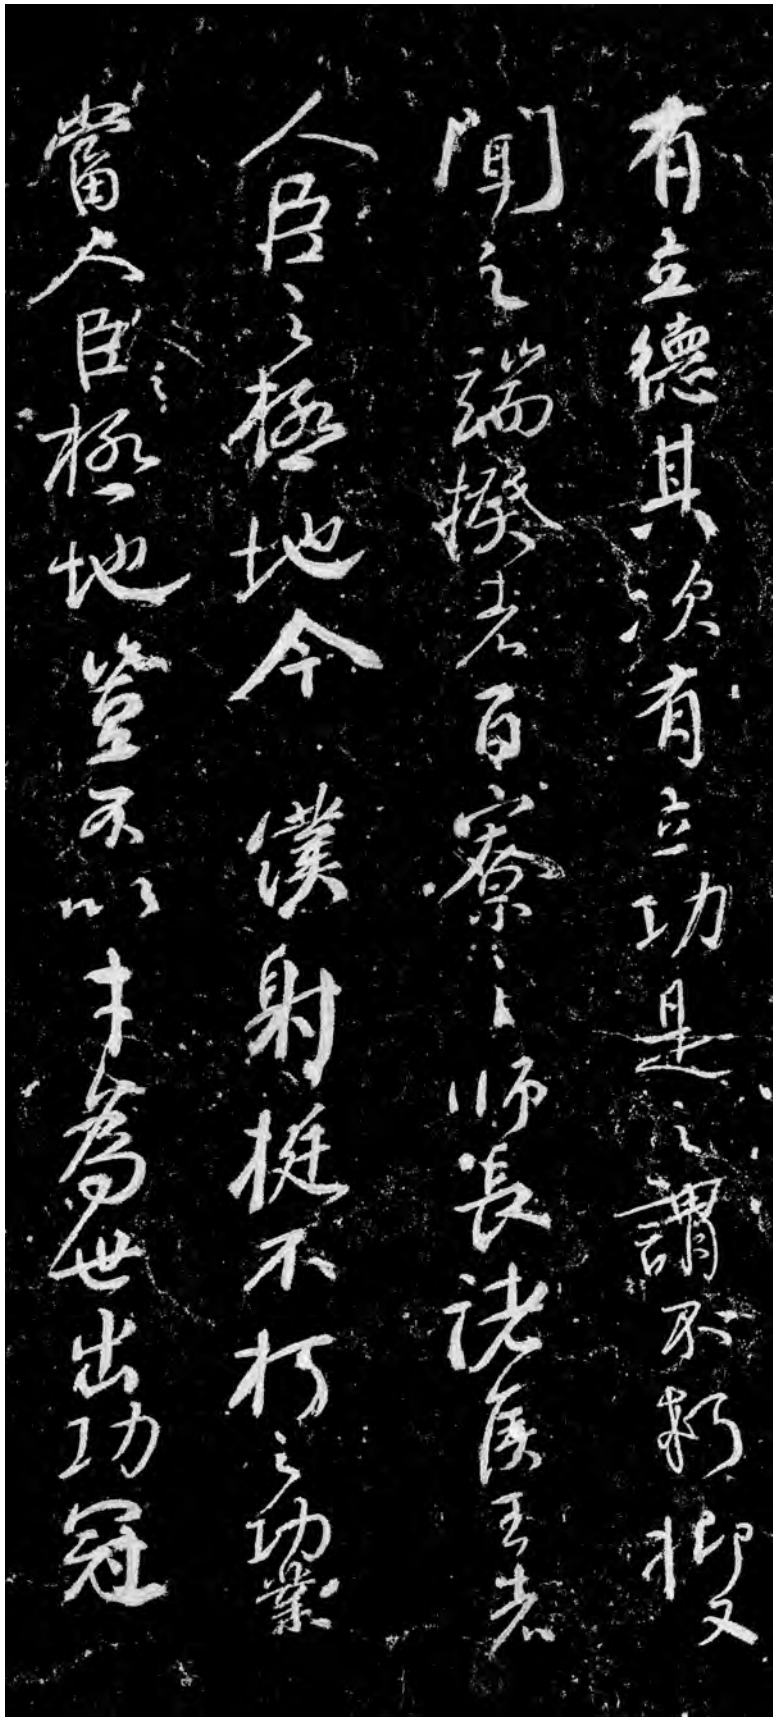 有立德其次有立功是之謂不朽抑又
聞之端揆者百寮之師長諸侯王者
人臣之極地今僕射挺不朽之功業
當人臣之極地豈不以才為世出功冠